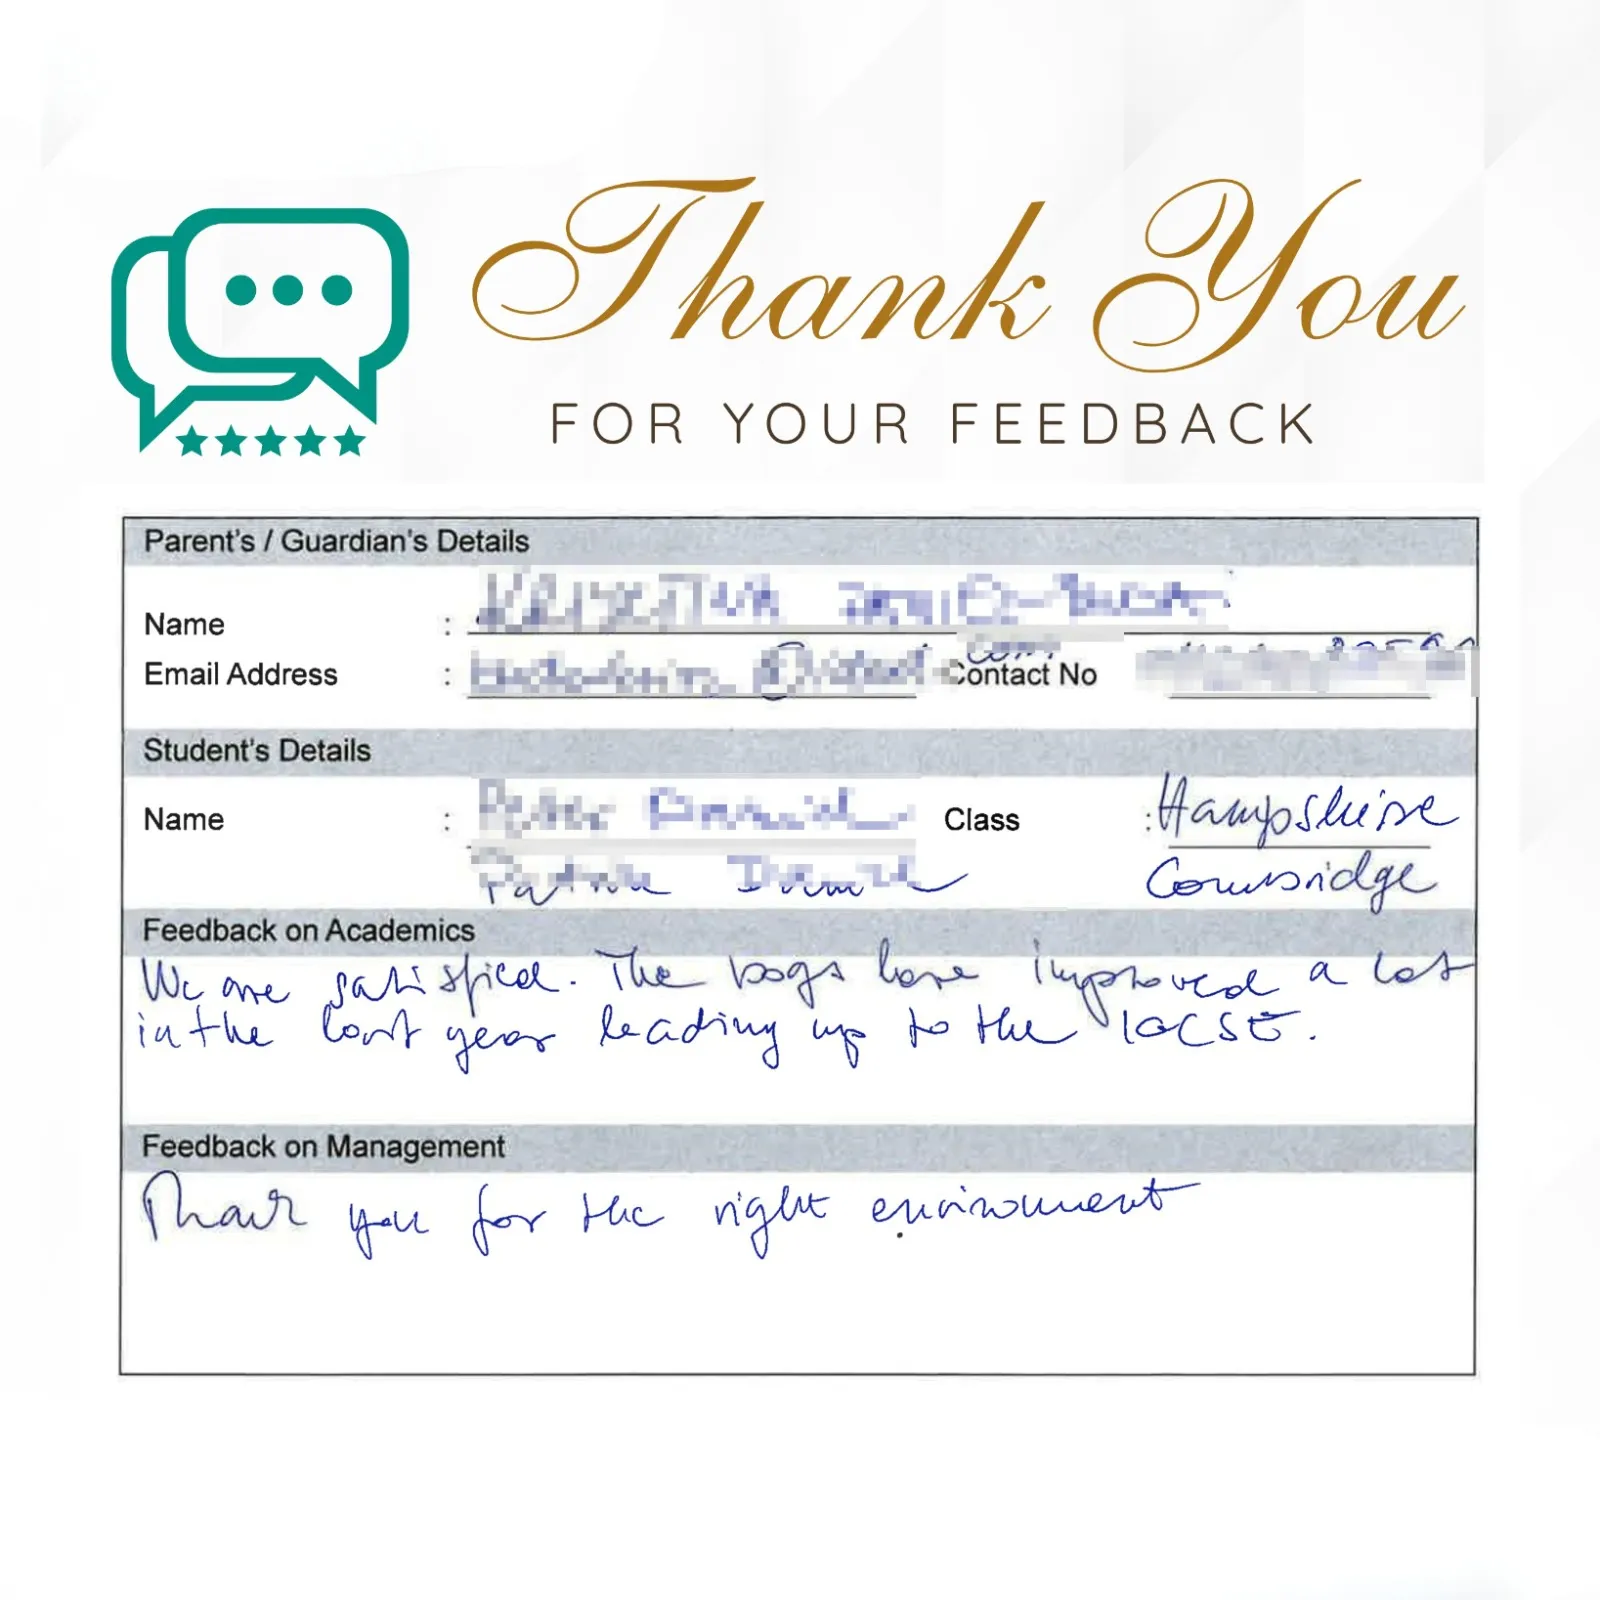 Thank You
FOR YOUR FEEDBACK
Parent's / Guardian's Details
Name :
Email Address : Contact No
com
Student's Details
Name : Class : Hampshire
Cambridge
Feedback on Academics
We are satisfied. The boys have improved a lot
in the last year leading up to the IGCSE.
Feedback on Management
Thank you for the right environment.